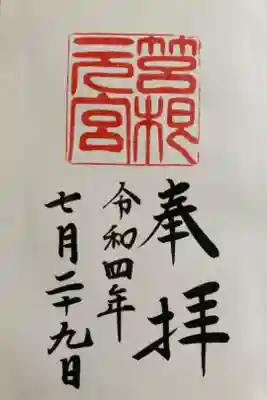 筥根
元宮
奉拝
令和四年
七月二十九日